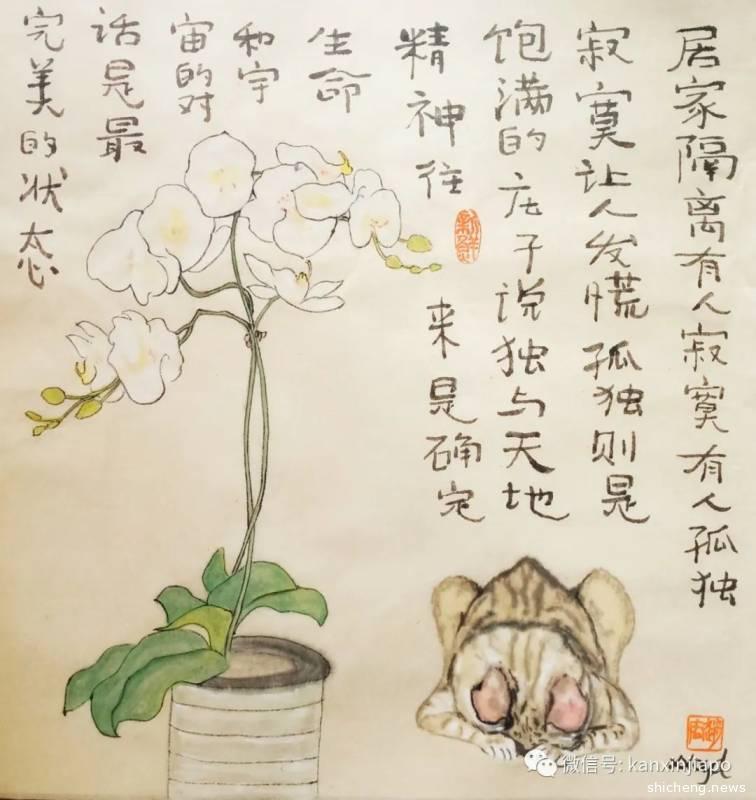 居家隔离有人寂寞有人孤独
寂寞让人发慌孤独则是
饱满的庄子说独与天地
精神往来是确定
生命
和宇
宙的对
话是最
完美的状态
微信号: kanxinjiapo
shicheng.news